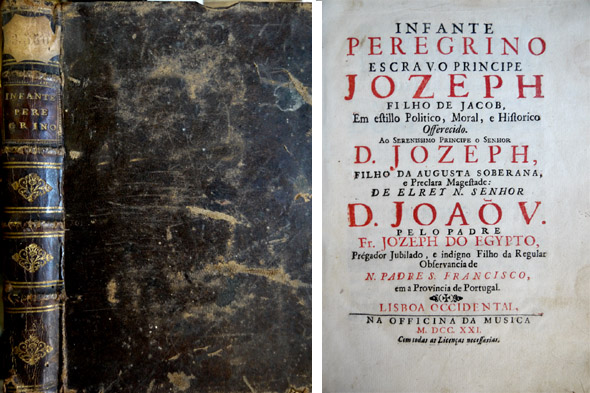 INFANTE
PERE
GRINO
INFANTE
PEREGRINO
ESCRAVO PRINCIPE
JOZEPH
FILHO DE JACOB,
Em eſtillo Politico, Moral, e Hiſtorico
Offerecido.
AO SERENISSIMO PRINCIPE O SENHOR
D. JOZEPH,
FILHO DA AUGUSTA SOBERANA,
e Preclara Mageſtade:
DE ELREY N. SENHOR
D. JOAÕ V.
PELO PADRE
Fr. JOZEPH DO EGYPTO,
Prégador Jubilado, e indigno Filho da Regular
Obſervancia de
N. PADRE S. FRANCISCO,
em a Provincia de Portugal.
LISBOA OCCIDENTAL,
NA OFFICINA DA MUSICA
M. DCC. XXI.
Com todas as Licenças neceſſarias.